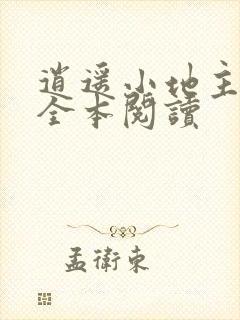 逍遥小地主
全本閱讀
孟衛東